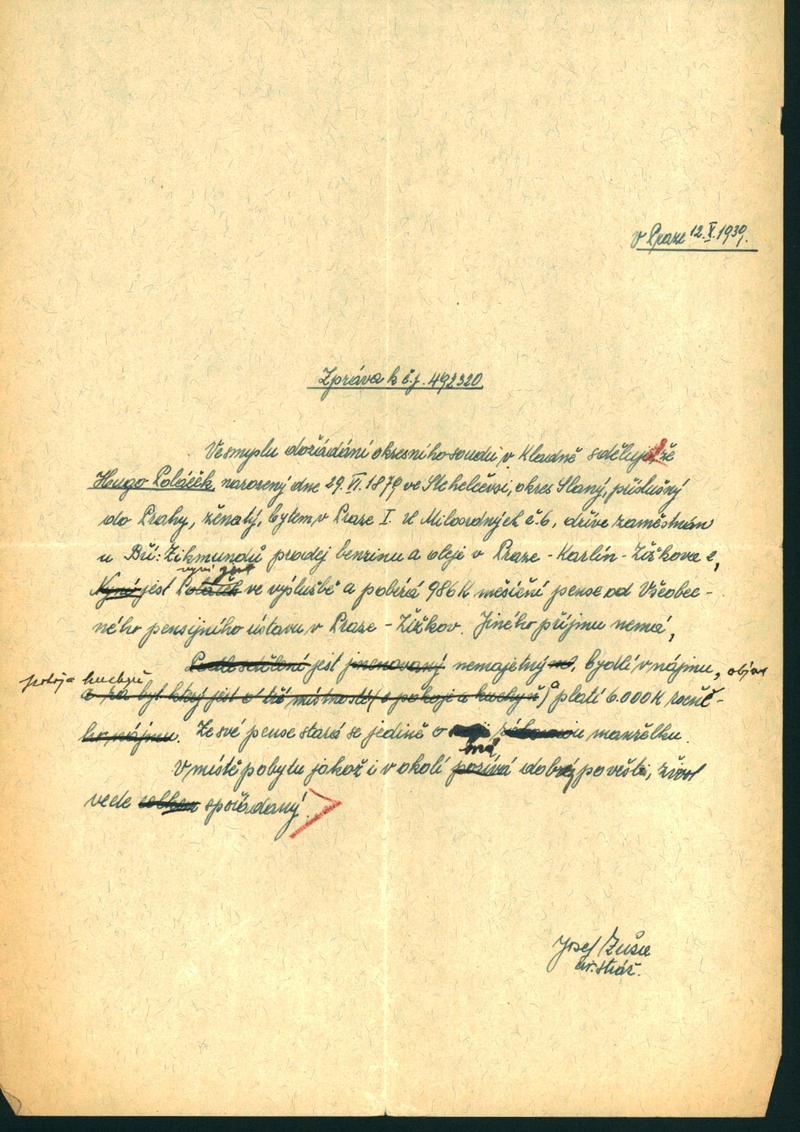 V Praze 12.V.1939.
Zpráva k č.j. 492320
Ve smyslu dožádání okresního soudu v Kladně sděluji, že
Hugo Poláček, narozený dne 29.VI.1879 ve Stehelčevsi, okres Slaný, příslušný
do Prahy, ženatý, bytem v Praze I. U Milosrdných č.6, dříve zaměstnán
u Bří: Zikmundů prodej benzinu a oleje v Praze - Karlín - Žižkov a
nyní jest
Nyní jest Poláček ve výslužbě a pobírá 986 K měsíční pense od Všeobec-
ného pensijního ústavu v Praze - Žižkov. Jiného příjmu nemá,
Podle sdělení jest jmenovaný nemajetný, bydlí v nájmu,
pokoj a kuchyň
a za byt který jest o dvě místnosti (z pokoje a kuchyně) platí 6.000 K roč-
ho nájmu. Ze své pense stará se jedině o manželku.
V místě pobytu jakož i v okolí požívá dobré pověsti, život
vede celkem spořádaný.
Josef